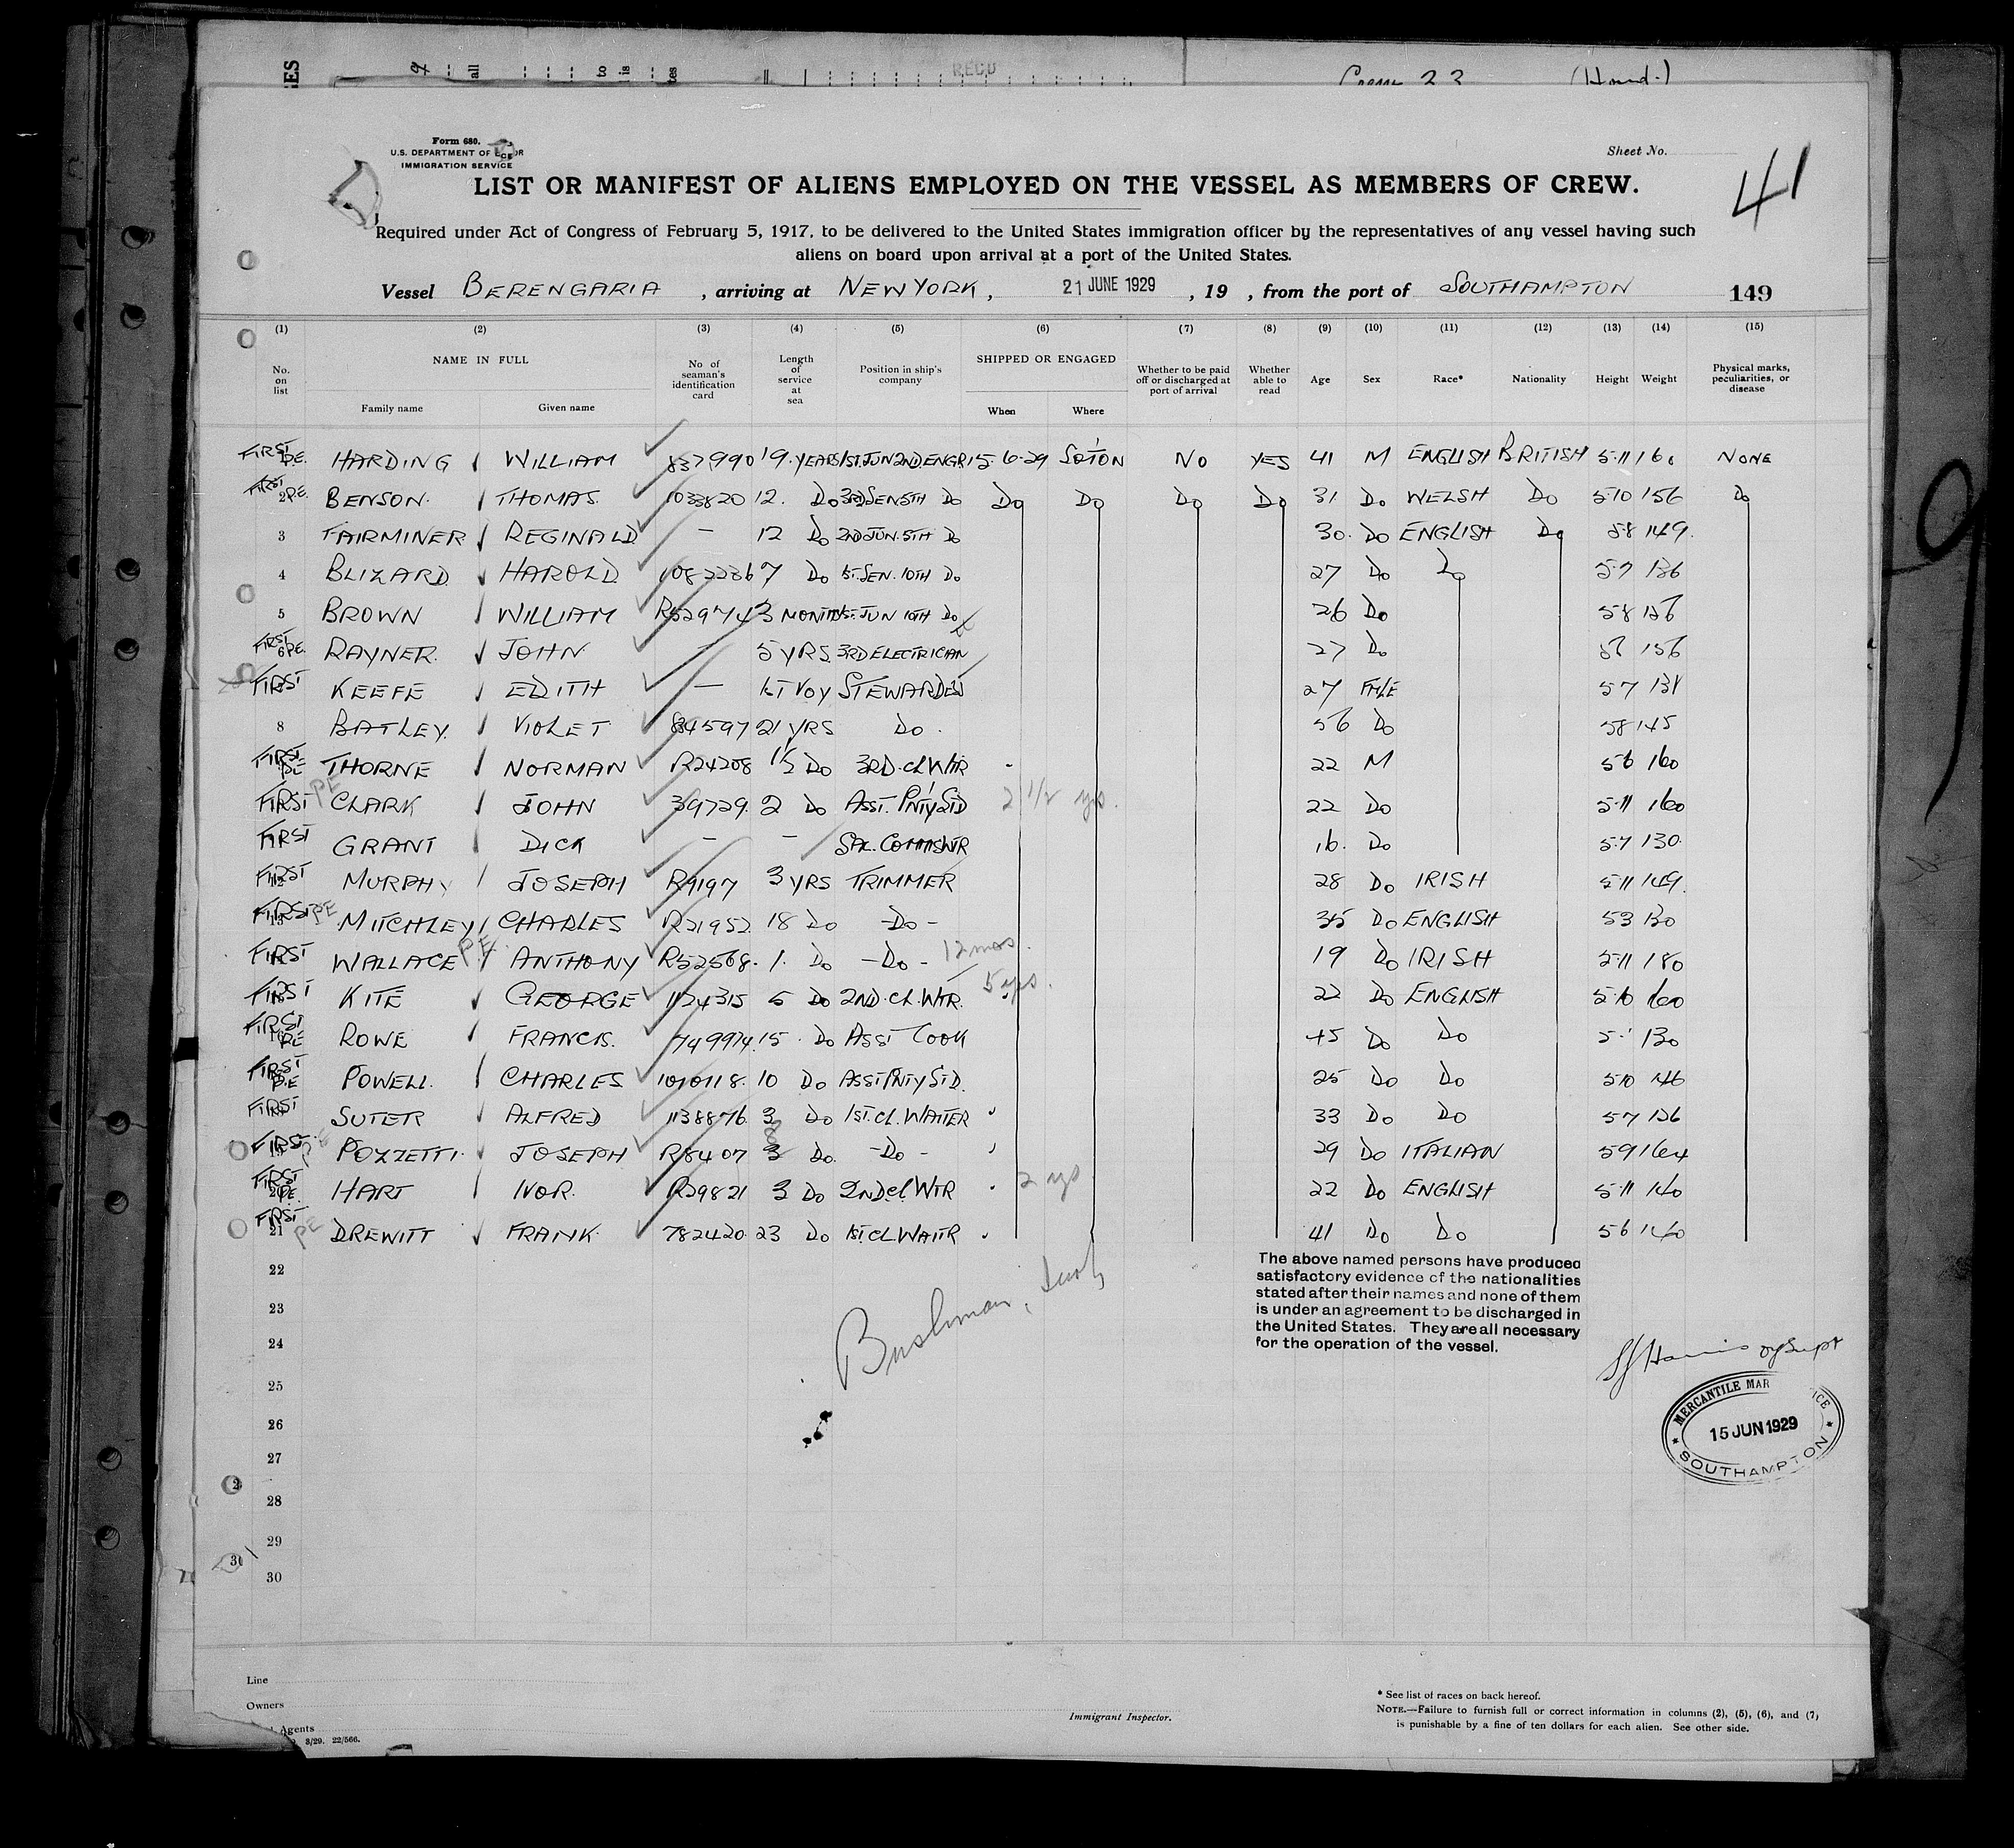 Form 680.
U.S. DEPARTMENT OF
IMMIGRATION SERVICE
Sheet No.
41
LIST OR MANIFEST OF ALIENS EMPLOYED ON THE VESSEL AS MEMBERS OF CREW.
Required under Act of Congress of February 5, 1917, to be delivered to the United States immigration officer by the representatives of any vessel having such
aliens on board upon arrival at a port of the United States.
Vessel BERENGARIA, arriving at NEW YORK, 21 JUNE 1929, 19 , from the port of SOUTHAMPTON 149
(1) (2) (3) (4) (5) (6) (7) (8) (9) (10) (11) (12) (13) (14) (15)
No. on list NAME IN FULL Family name Given name No of seaman's identification card Length of service at sea Position in ship's company SHIPPED OR ENGAGED When Where Whether to be paid off or discharged at port of arrival Whether able to read Age Sex Race* Nationality Height Weight Physical marks, peculiarities, or disease
FIRST PE. HARDING WILLIAM 837990 19. YEARS 1ST. JUN 2ND. ENGR 15-6-29 SO'TON NO YES 41 M ENGLISH BRITISH 5-11 NONE
FIRST 2 PE. BENSON. THOMAS. 1033820 12. Do 3RD SEN 5TH Do Do Do Do Do 31 Do WELSH Do 5-10 156 Do
3 FAIRMINER REGINALD - 12 Do 2ND JUN. 5TH Do 30. Do ENGLISH Do 5-8 149.
4 BLIZARD HAROLD 7 Do 1ST. SEN. 10TH Do 27 Do Do 5-7 136
5 BROWN WILLIAM R529743 MONTHS 1ST. JUN 10TH Do 26 Do 5-8
FIRST 6 PE. RAYNER. JOHN - 5 YRS. 3RD ELECTRICIAN 27 Do 156
FIRST KEEFE EDITH - 1ST VOY STEWARDESS 27 FMLE 5-7
8 BATLEY. VIOLET 84597 21 YRS Do. 56 Do 5-8 145
FIRST PE THORNE NORMAN R24208 1½ Do 3RD. CL WTR 22 M 5-6 160
FIRST PE CLARK JOHN 39729. 2 Do ASST. P'NTY STD 2 1/2 yrs. 22 Do 5-11 160
FIRST GRANT DICK - - 16. Do 5-7 130.
FIRST MURPHY JOSEPH R9197 3 YRS TRIMMER 28 Do IRISH 5-11 149.
FIRST PE MITCHLEY CHARLES R21952 18 Do -Do- 35 Do ENGLISH 5-3 130
FIRST WALLACE P.E. ANTHONY R52568. 1. Do -Do- 12 mos. 19 Do IRISH 5-11 180
FIRST KITE GEORGE 1124315 5 Do 2ND. CL. WTR. 5 yrs. 22 Do ENGLISH 5-10 160
FIRST PE ROWE FRANCIS. 749974. 15. Do ASST COOK 45 Do Do 130
FIRST P.E POWELL. CHARLES 1010118. 10 Do ASST P'NTY STD. 25 Do Do 5-10 146
FIRST SUTER ALFRED 1138876 3 Do 1ST. CL. WAITER 33 Do Do 5-7
FIRST PE POZZETTI. JOSEPH R8407 3 Do. -Do- 29 Do ITALIAN 5-9 164
FIRST PE. HART IVOR. R29821 3 Do 2ND. CL WTR 2 yrs 22 Do ENGLISH 5-11 140
FIRST 21 PE DREWITT FRANK. 782420. 23 Do 1ST. CL WAITR 41 Do Do 5-6 140
22
23
24
25
26
27
28
29
30
Bushman,
The above named persons have produced
satisfactory evidence of the nationalities
stated after their names and none of them
is under an agreement to be discharged in
the United States. They are all necessary
for the operation of the vessel.
Harris Dy Supt
MERCANTILE MAR ICE
15 JUN 1929
SOUTHAMPTON
Line
Owners
Agents
3/29. 22/566.
Immigrant Inspector.
* See list of races on back hereof.
NOTE.—Failure to furnish full or correct information in columns (2), (5), (6), and (7)
is punishable by a fine of ten dollars for each alien. See other side.